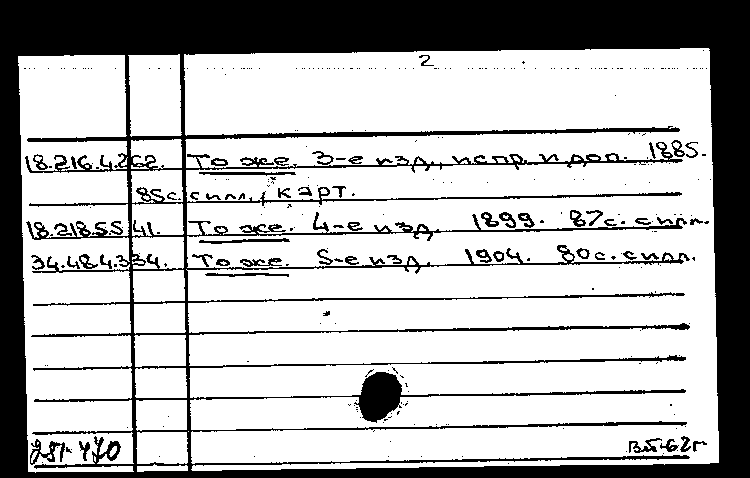 2
18.216.4.262. То же. 3-е изд., испр. и доп. 1885.
85с. с илл., карт.
18.218.5.541. То же. 4-е изд. 1899. 87с. с илл.
34.48.4.334. То же. 5-е изд. 1904. 80с. с илл.